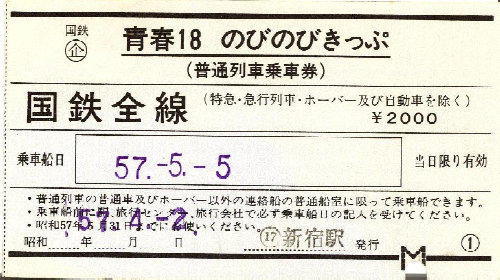 国鉄
企
青春18 のびのびきっぷ
(普通列車乗車券)
国鉄全線 (特急・急行列車・ホーバー及び自動車を除く)
¥2000
乗車船日 57.-5.-5 当日限り有効
・普通列車の普通車及びホーバー以外の連絡船の普通船室に限って乗車船できます。
・乗車船前に駅、旅行センター、旅行会社で必ず乗車船日の記入を受けてください。
・昭和57年5月31日までにお使いください。
57.-4.-2
昭和 年 月 日 ⑰新宿駅 発行 ①
M